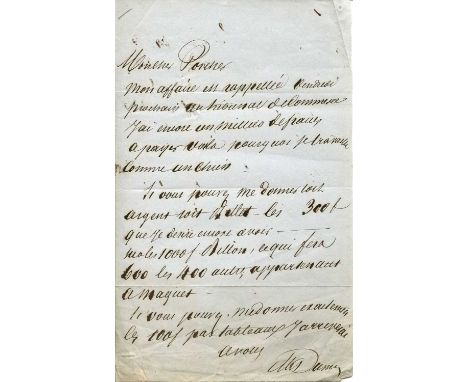 Mon cher Porcher
Mon affaire est rappellée Vendredi
prochain au tribunal de Commerce
J'ai encore un millier de francs
a payer voila pourquoi je travaille
comme un chien.
Si vous pouvez me donner soit
argent soit Billet – les 300 f
que je dois encore avoir –
sur les 1000 f Billon, ce qui fera
600 les 400 autres appartenant
a Maquet –
Si vous pouvez, me donner
les 100 f par tableaux J'arriverai
a vous
Alex Dumas